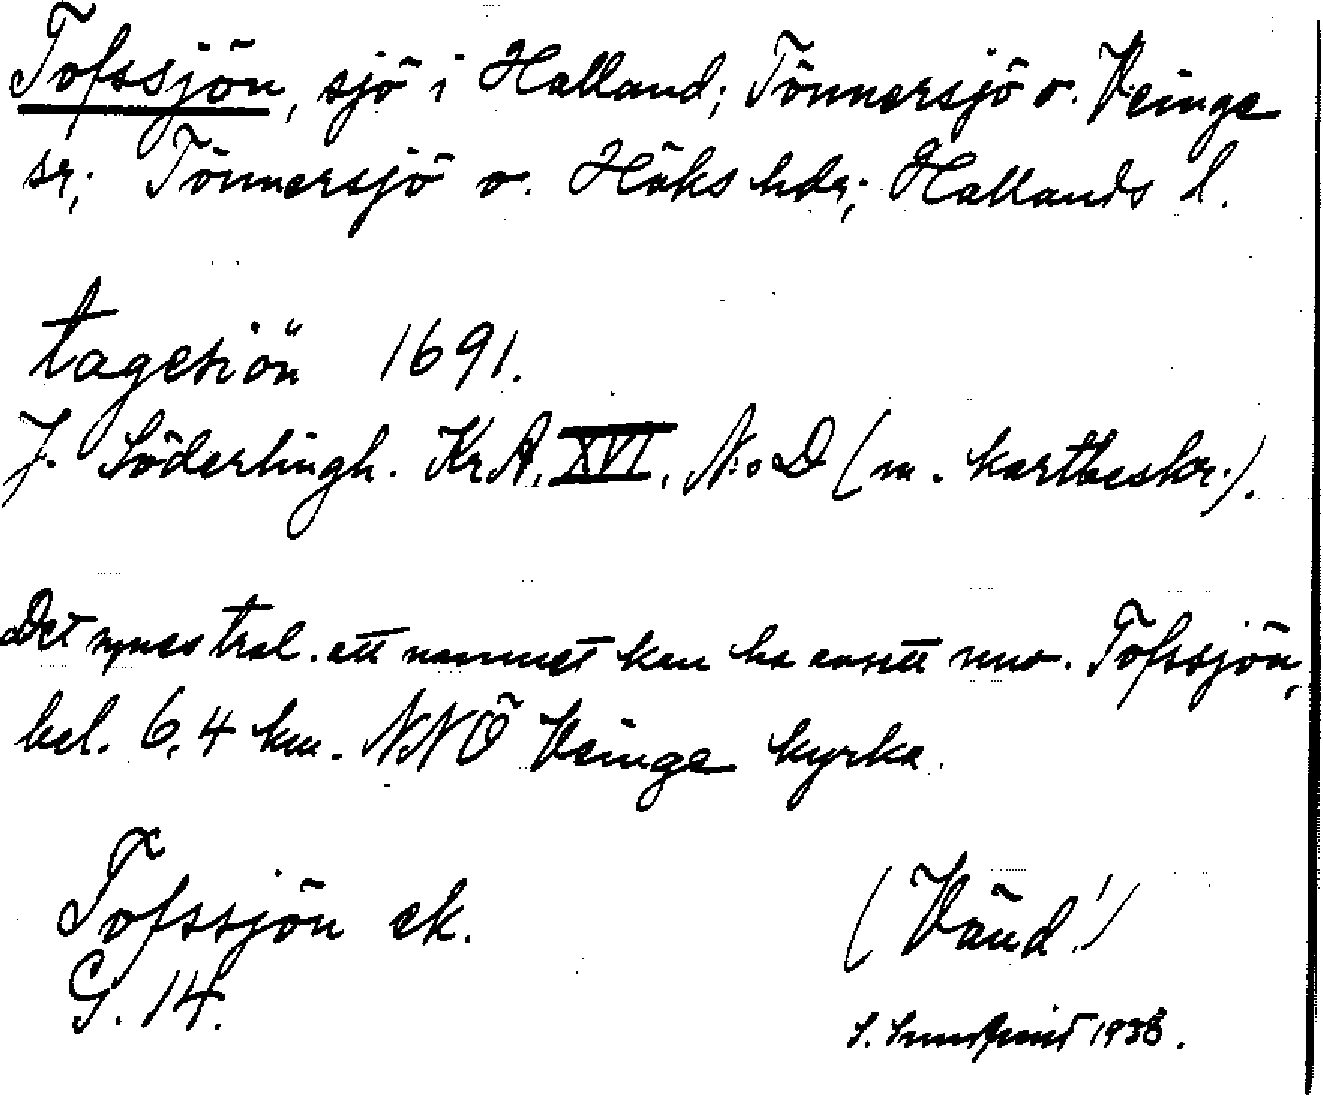 Tofssjön, sjö i Halland; Tönnersjö o. Veinge
sr; Tönnersjö o. Höks hdr; Hallands l.
tagesiön 1691.
J. Söderlingh. KrA. XVI. N:o D (m. kartbeskr.).
Det synes trol. att namnet kan ha avsett nuv. Tofssjön,
bel. 6,4 km. NNÖ Veinge kyrka.
Tofssjön ek.
G. 14.
(Vänd!)
S. 1938.